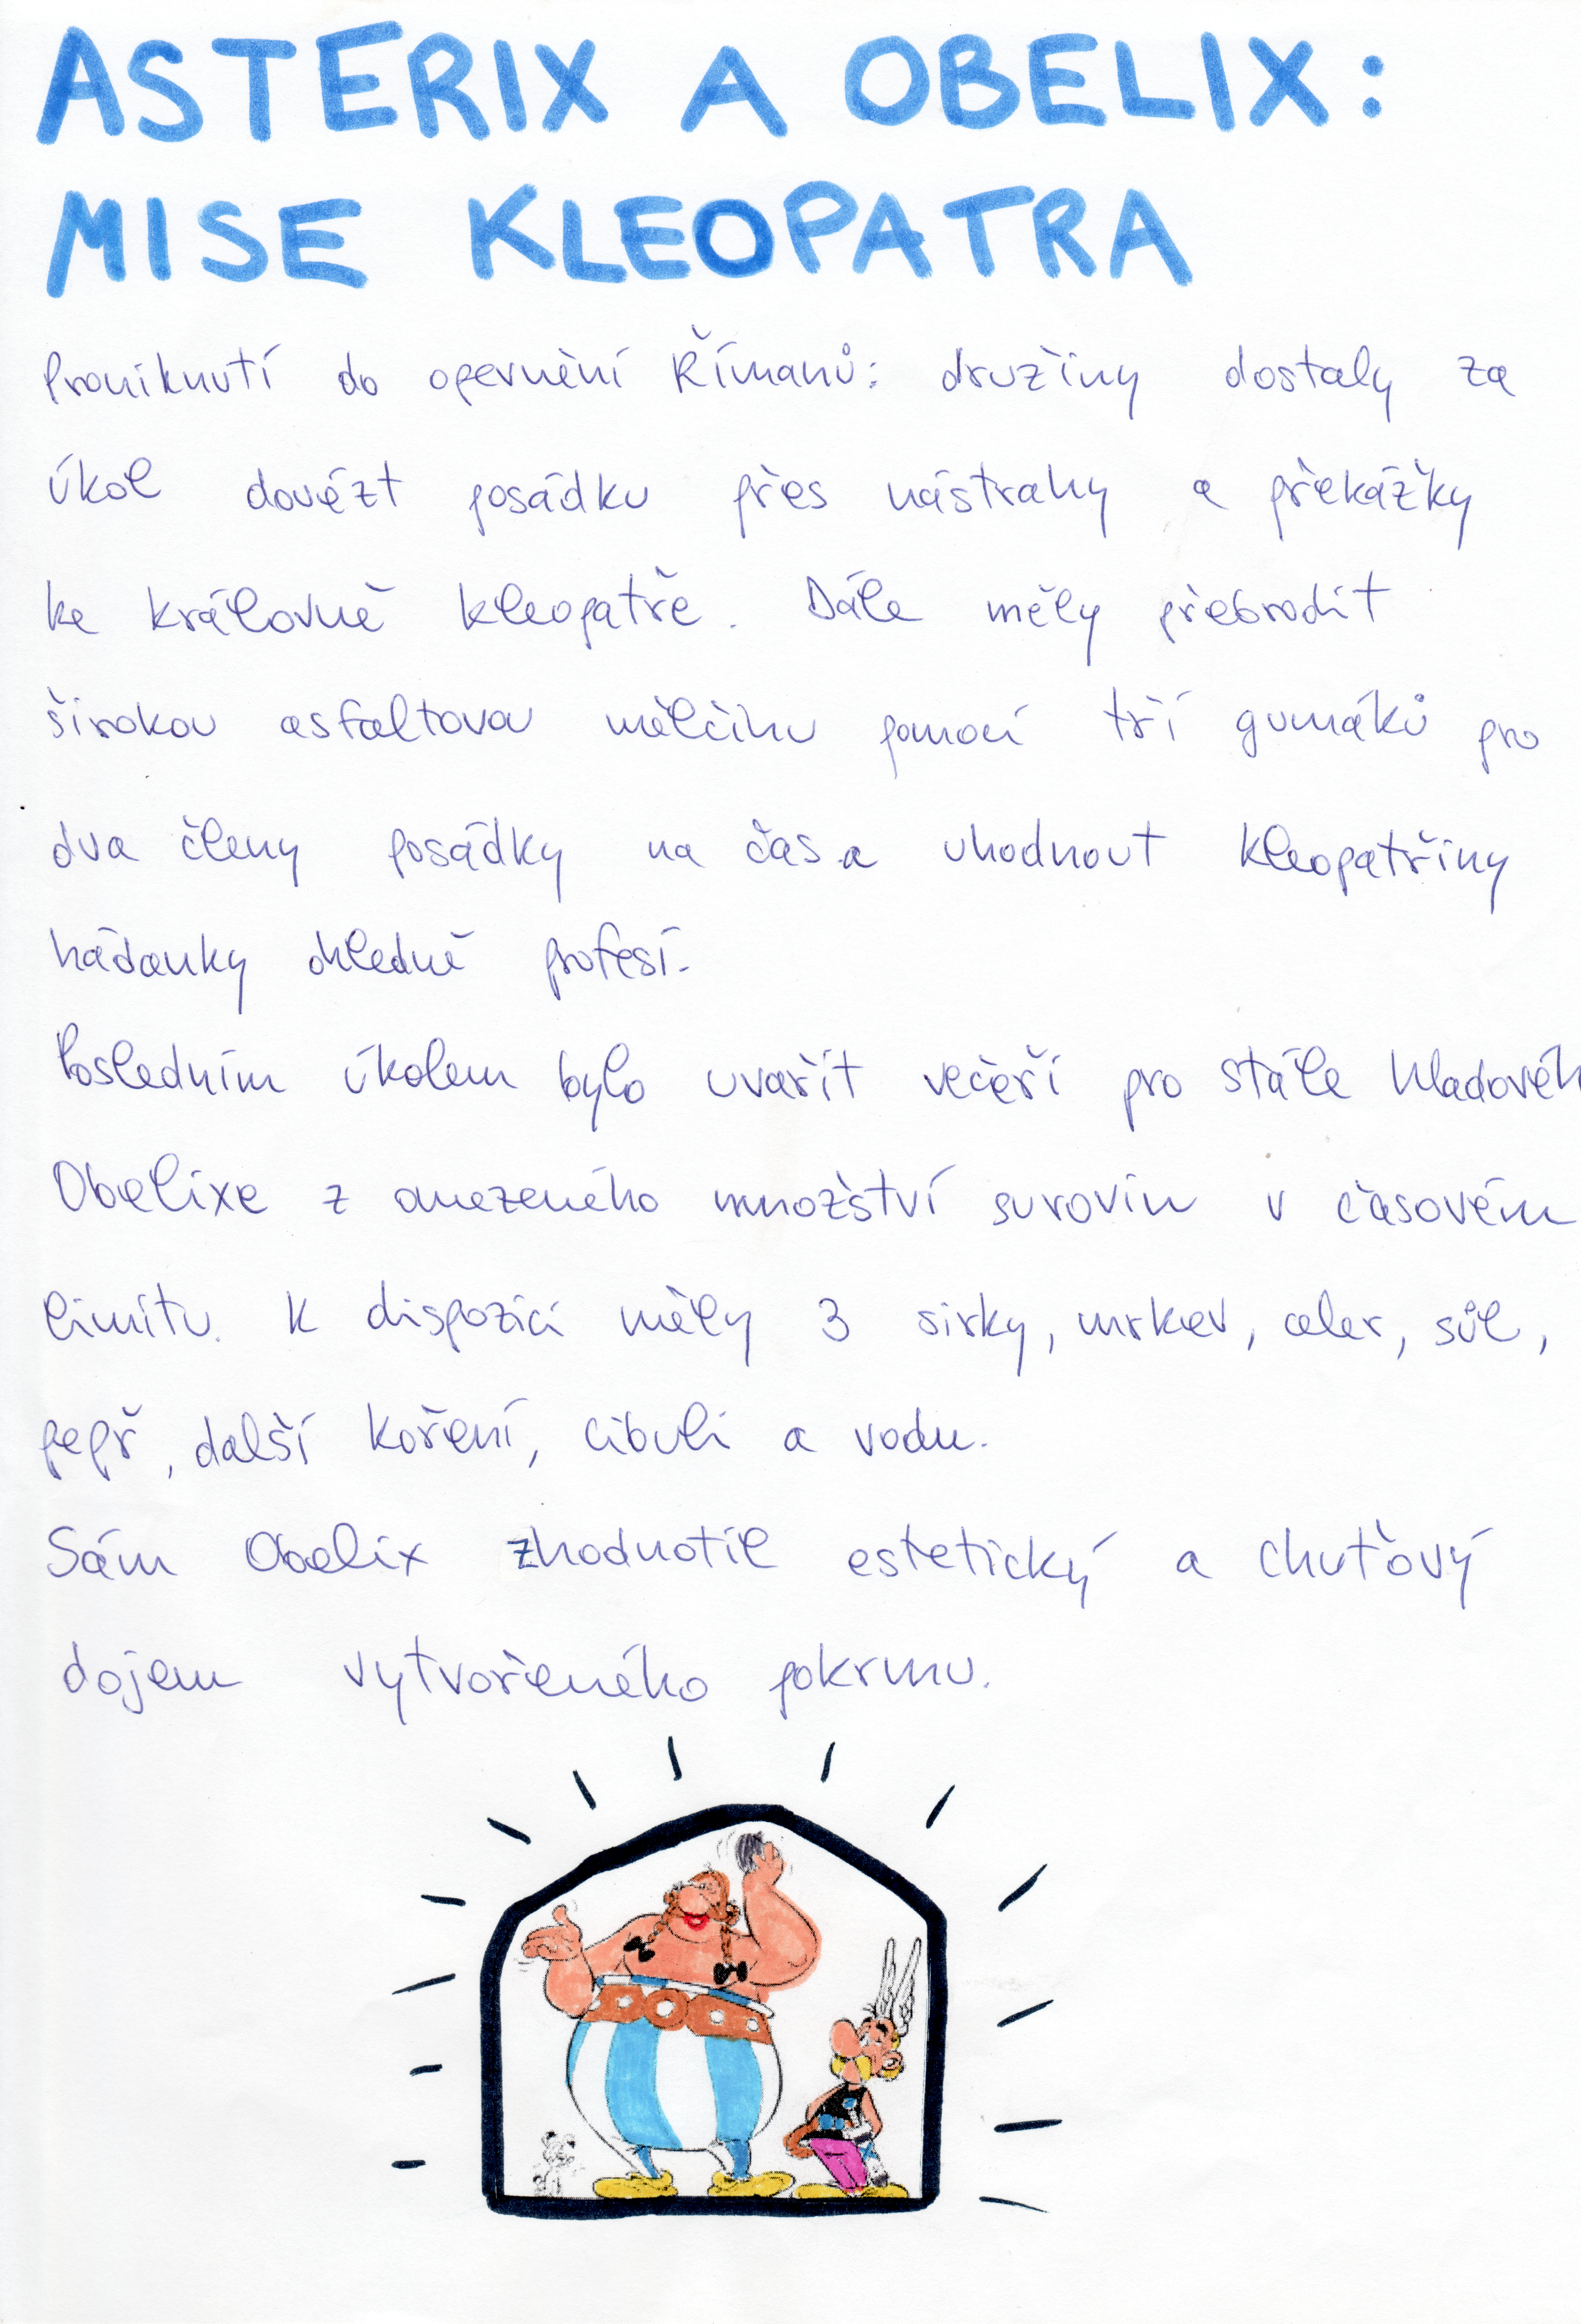 ASTERIX A OBELIX:
MISE KLEOPATRA
Proniknutí do opevnění Římanů: družiny dostaly za
úkol dovézt posádku přes nástrahy a překážky
ke královně Kleopatře. Dále měly přebrodit
širokou asfaltovou mělčinu pomocí tří gumáků pro
dva členy posádky na čas a uhodnout Kleopatřiny
hádanky ohledně profesí.
Posledním úkolem bylo uvařit večeři pro stále hladovéh
Obelixe z omezeného množství surovin v časovém
limitu. K dispozici měly 3 sirky, mrkev, celer, sůl,
pepř, další koření, cibuli a vodu.
Sám Obelix zhodnotil estetický a chuťový
dojem vytvořeného pokrmu.